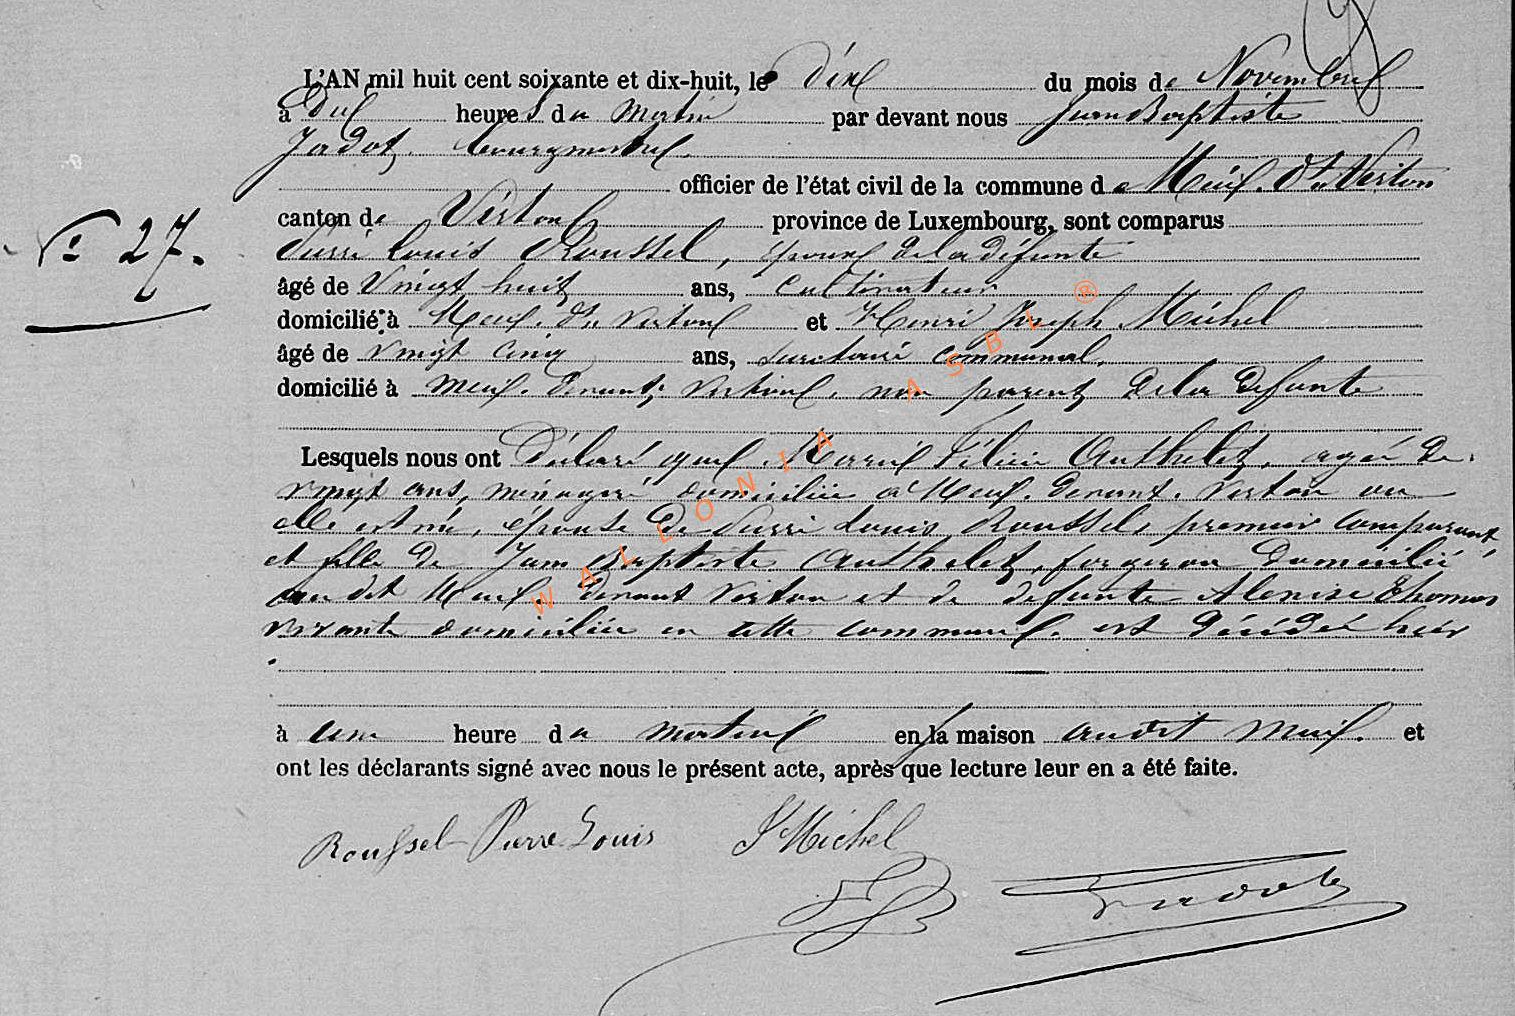 L'AN mil huit cent soixante et dix-huit, le dix du mois de Novembre
à dix heures du matin par devant nous Jean Baptiste
Jadot, bourgmestre
officier de l'état civil de la commune de Meix-dt-Virton
canton de Virton province de Luxembourg, sont comparus
N° 27.
Pierre Louis Roussel, époux de la défunte
âgé de vingt huit ans, cultivateur
domicilié à Meix-dt-Virton et Henri Joseph Michel
âgé de vingt cinq ans, secrétaire communal,
domicilié à Meix-devant-Virton, non parent de la défunte
Lesquels nous ont déclaré que Marie Félicie Authelet, agée de
vingt ans, ménagère domiciliée à Meix-devant-Virton où
elle est née, épouse de Pierre Louis Roussel, premier comparant
et fille de Jean Baptiste Authelet, forgeron domicilié
au dit Meix-devant Virton et de défunte Thomas
vivante domiciliée en cette commune, est décédée hier
à une heure du matin en la maison audit Meix et
ont les déclarants signé avec nous le présent acte, après que lecture leur en a été faite.
Roussel Pierre Louis J Michel
Jadot
WALLONIA ASBL ®